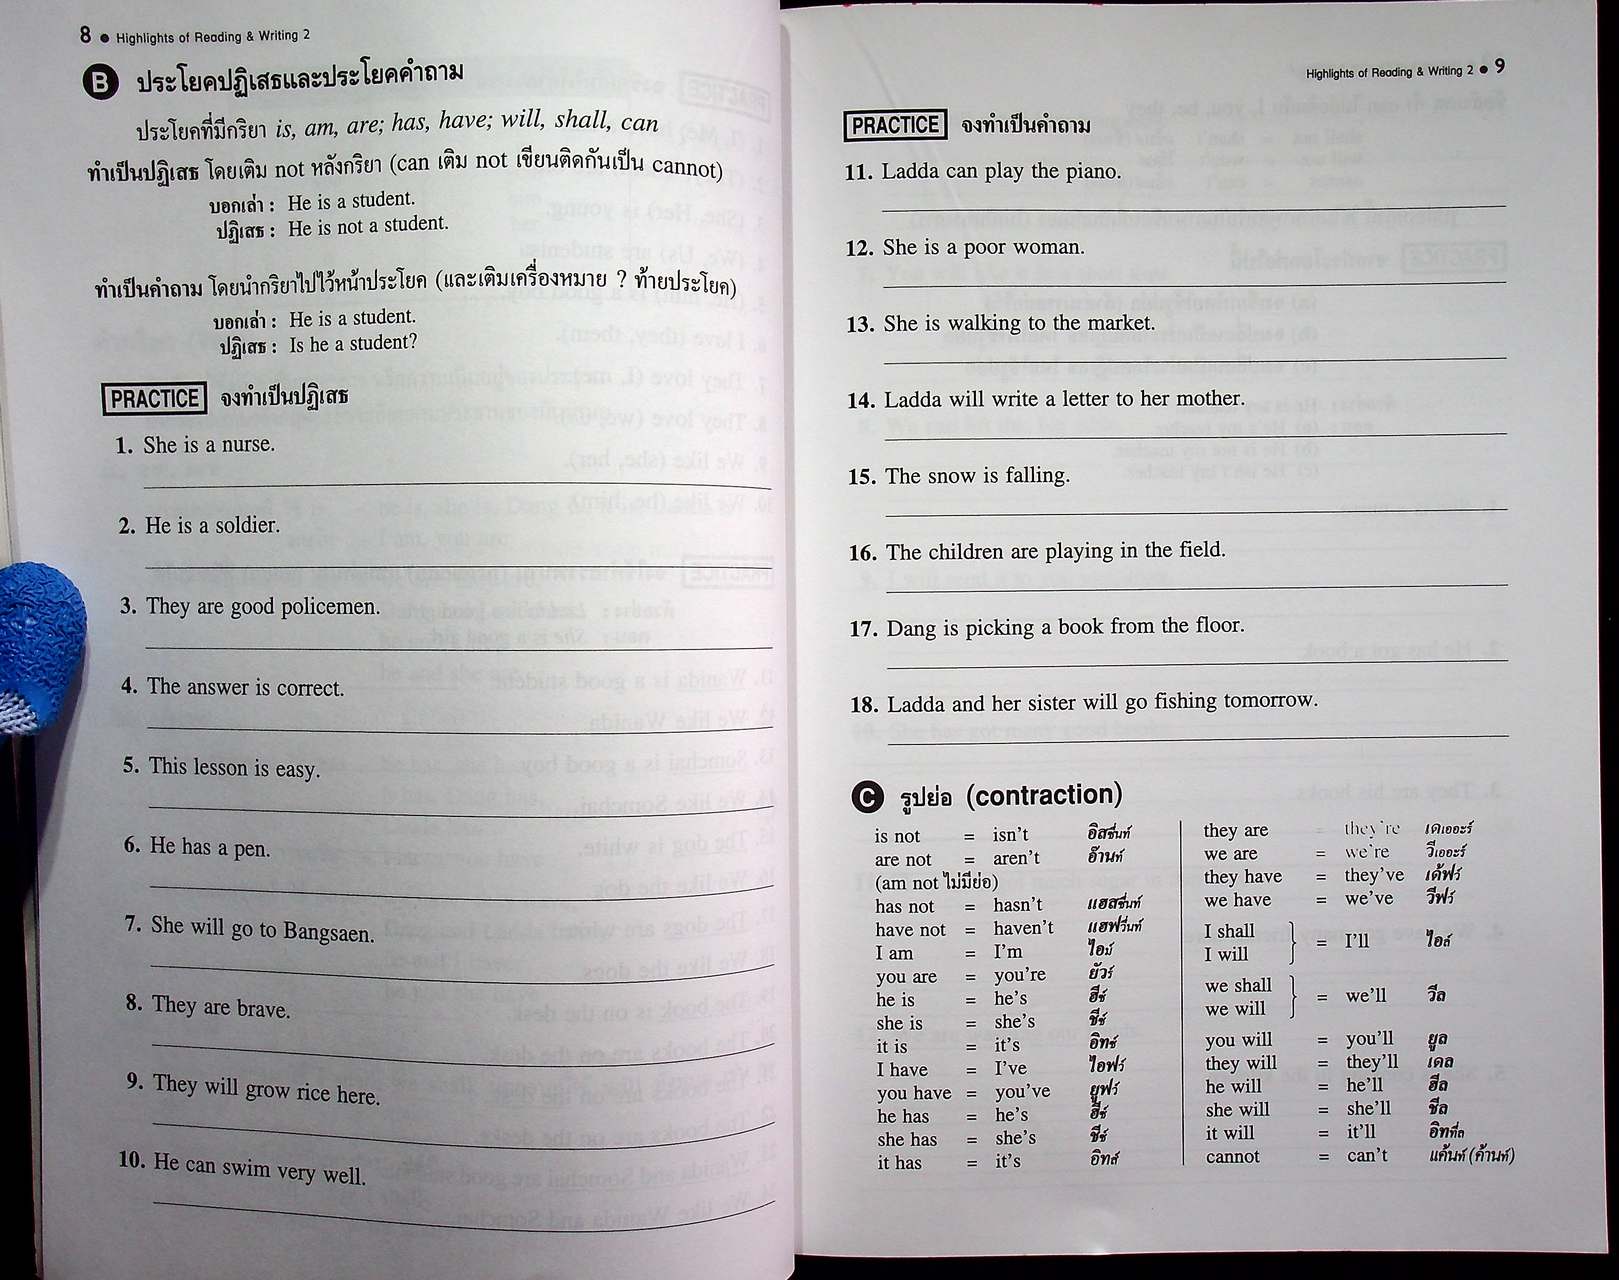 8 ● Highlights of Reading & Writing 2
B ประโยคปฏิเสธและประโยคคำถาม
ประโยคที่มีกริยา is, am, are; has, have; will, shall, can
ทำเป็นปฏิเสธ โดยเติม not หลังกริยา (can เติม not เขียนติดกันเป็น cannot)
บอกเล่า : He is a student.
ปฏิเสธ : He is not a student.
ทำเป็นคำถาม โดยนำกริยาไปไว้หน้าประโยค (และเติมเครื่องหมาย ? ท้ายประโยค)
บอกเล่า : He is a student.
ปฏิเสธ : Is he a student?
PRACTICE จงทำเป็นปฏิเสธ
1. She is a nurse.
2. He is a soldier.
3. They are good policemen.
4. The answer is correct.
5. This lesson is easy.
6. He has a pen.
7. She will go to Bangsaen.
8. They are brave.
9. They will grow rice here.
10. He can swim very well.
Highlights of Reading & Writing 2 ● 9
PRACTICE จงทำเป็นคำถาม
11. Ladda can play the piano.
12. She is a poor woman.
13. She is walking to the market.
14. Ladda will write a letter to her mother.
15. The snow is falling.
16. The children are playing in the field.
17. Dang is picking a book from the floor.
18. Ladda and her sister will go fishing tomorrow.
C รูปย่อ (contraction)
is not = isn't อิสซึ่นท์
are not = aren't อ๊านท์
(am not ไม่มีย่อ)
has not = hasn't แฮสซึ่นท์
have not = haven't แฮฟวึ่นท์
I am = I'm ไอม์
you are = you're ยัวร์
he is = he's ฮีซ์
she is = she's ชีซ์
it is = it's อิทซ์
I have = I've ไอฟว์
you have = you've ยูฟว์
he has = he's ฮีซ์
she has = she's ชีซ์
it has = it's อิทส์
they are = they're เดเออะร์
we are = we're วีเออะร์
they have = they've เด้ฟว์
we have = we've วีฟว์
I shall
I will } = I'll ไอล์
we shall
we will } = we'll วีล
you will = you'll ยูล
they will = they'll เดล
he will = he'll ฮีล
she will = she'll ชีล
it will = it'll อิททึ่ล
cannot = can't แค้นท์ (ค้านท์)